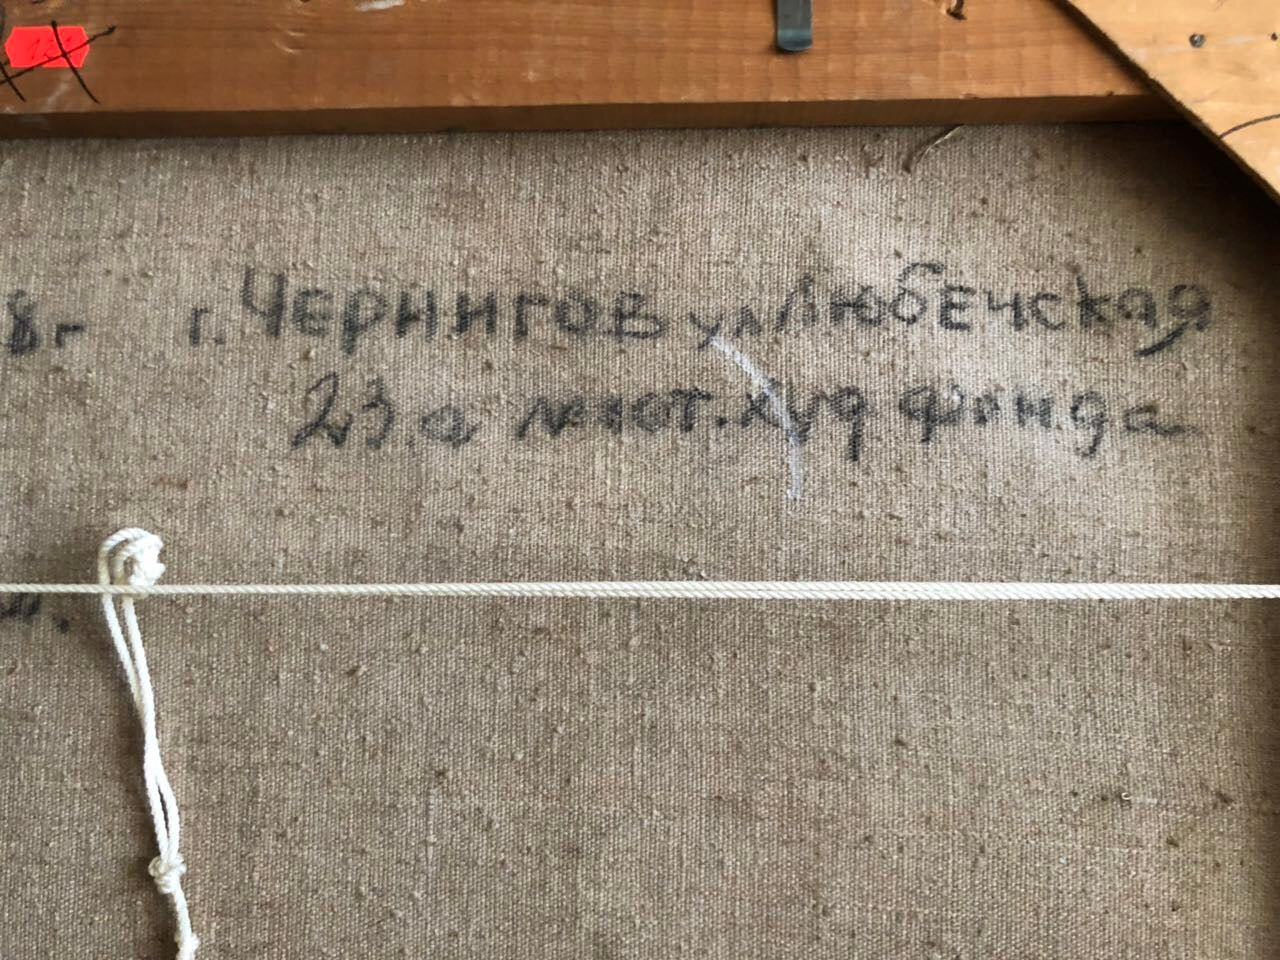 8г г. ЧЕРНИГОВ ул Любечская
23.а худ фонда